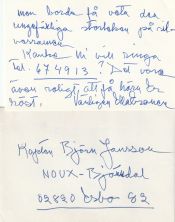 man borde få veta den
ungefärliga storleken på
Kanske Ni vill ringa
tel. 674913? Det vore
även roligt att få höra Er
röst. Vänligen
Kapten Björn Jansson
NOUX-Björndal
02820 Esbo 82